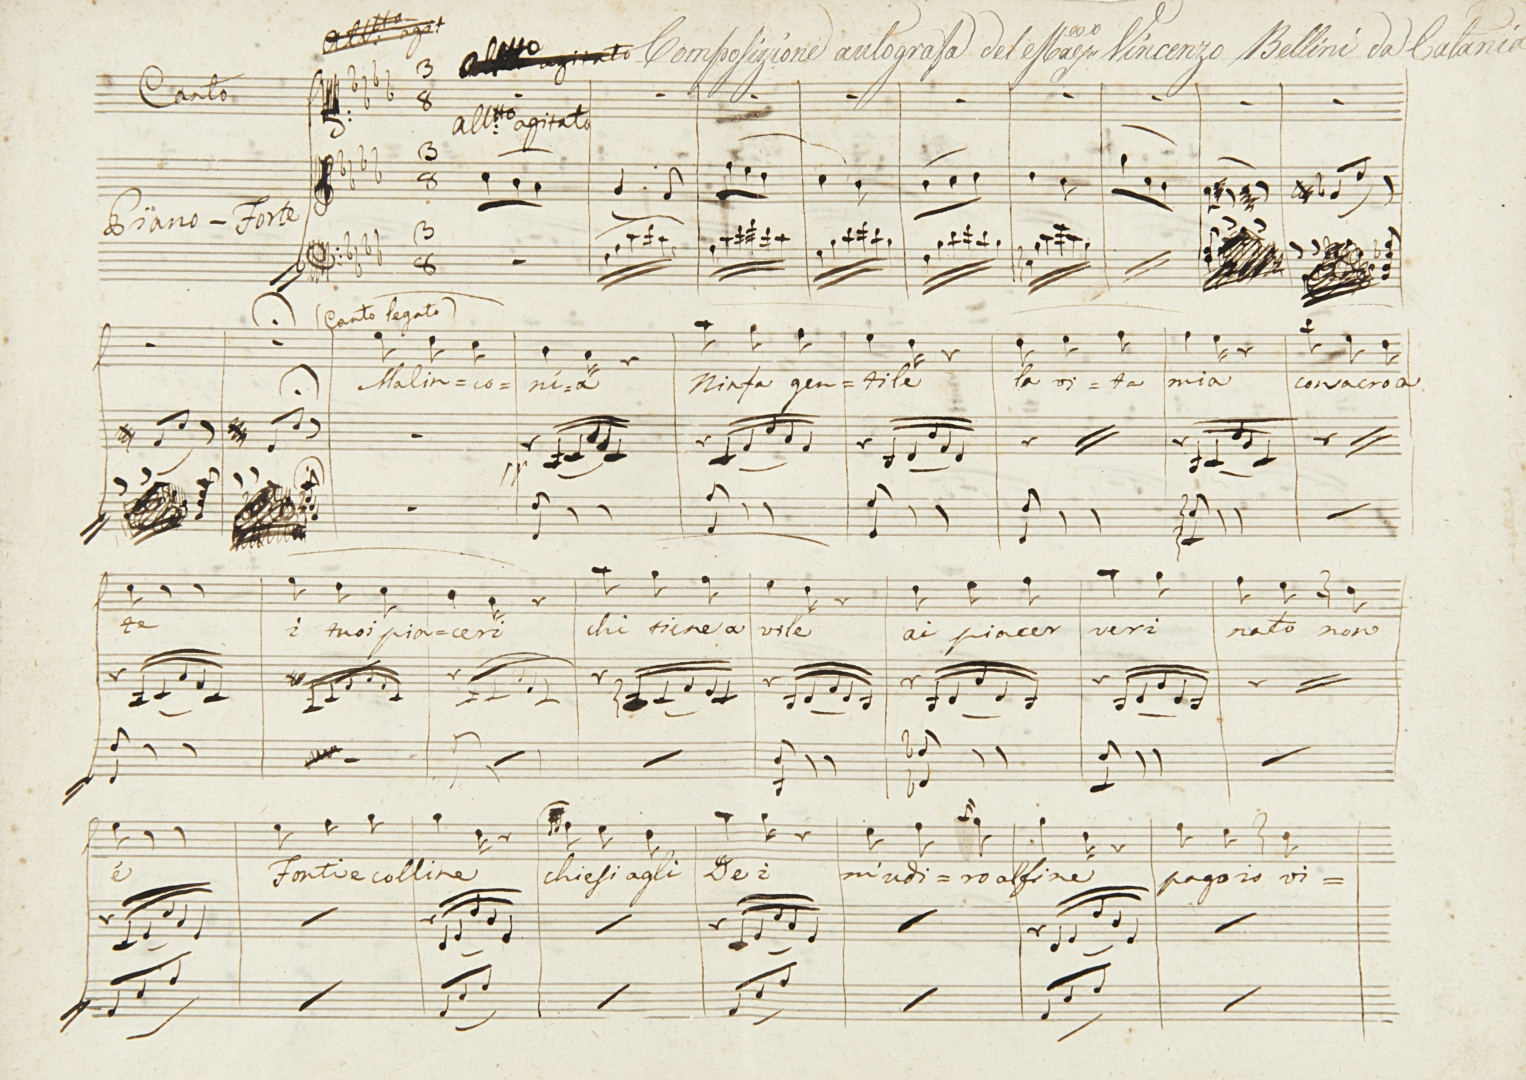 all.tto agit
all.tto agitato Composizione autografa del Maestro Vincenzo Bellini da Catania
Canto
3 8
all.tto agitato
3 8
Piano-Forte
3 8
(Canto legato)
Malin=co= ní=a Ninfa gen=tile la vi=ta mia consacro a
te i tuoi pia=ceri chi tiene a vile ai piacer veri nato non
é Fonti e colline chiesi agli Dei m'udi=ro alfine pago io vi=